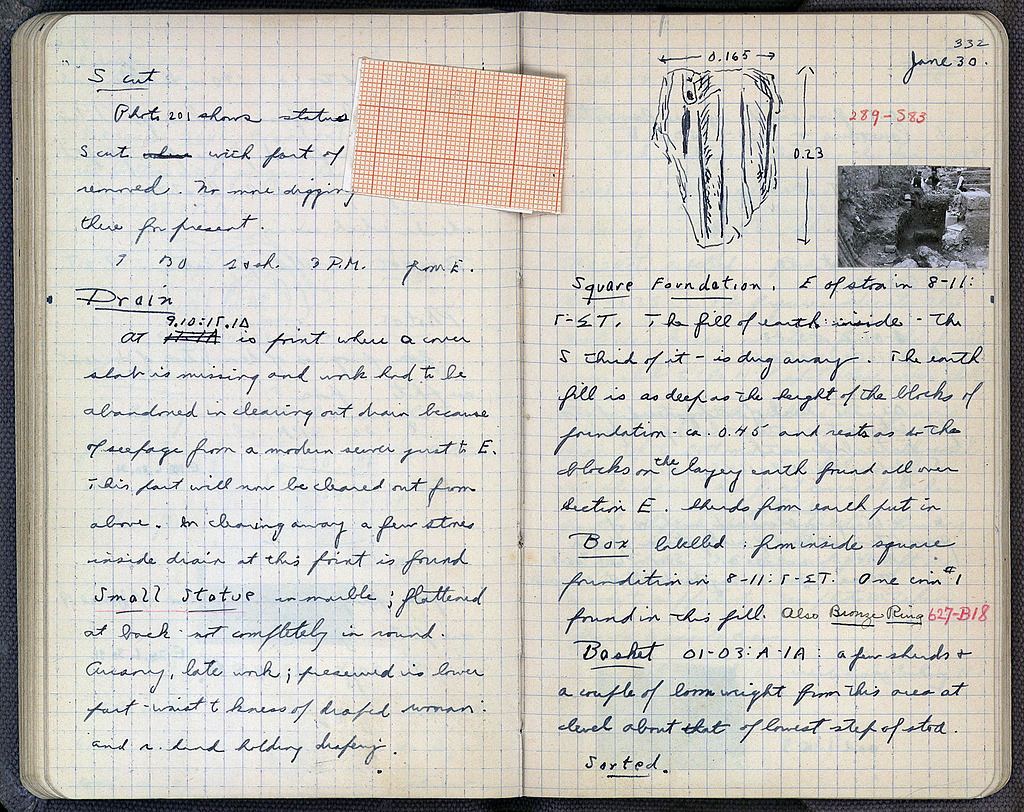 S cut
Photo 201 shows status
S cut with part of
removed. No more digging
there for present.
7 30 3 P.M. from E.
Drain
9.10:ΙΓ.ΙΔ
At is point where a cover
slab is missing and work had to be
abandoned in clearing out drain because
of seepage from a modern sewer just to E.
This part will now be cleared out from
above. In clearing away a few stones
inside drain at this point is found
Small Statue in marble; flattened
at back - not completely in round.
Cursory, late work; preserved is lower
part - waist to knees of draped woman:
and r. hand holding drapery.
332
June 30.
0.165
0.23
289-S83
Square Foundation. E of stoa in 8-11:
Γ-ΣΤ. The fill of earth inside - the
S third of it - is dug away. The earth
fill is as deep as the height of the blocks of
foundation - ca. 0.45 and rests as do the
blocks on the clayey earth found all over
Section E. Sherds from earth put in
Box labelled: from inside square
foundation in 8-11: Γ-ΣΤ. One coin #1
found in this fill. Also Bronze Ring 627-B18
Basket 01-03: Α-ΙΑ: a few sherds +
a couple of loom weight from this area at
level about that of lowest step of stoa.
Sorted.